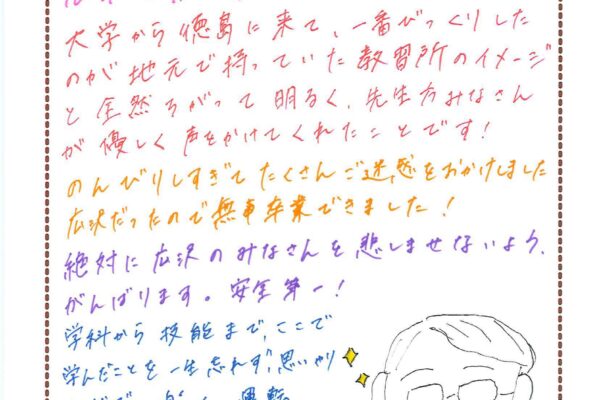 大学から徳島に来て、一番びっくりした
のが地元で持っていた教習所のイメージ
と全然ちがって明るく、先生方みなさん
が優しく声をかけてくれたことです！
のんびりしすぎてたくさんご迷惑をおかけしました
広沢だったので無事卒業できました！
絶対に広沢のみなさんを悲しませないよう、
がんばります。安全第一！
学科から技能まで、ここで
学んだことを一生忘れず、思いやり
運転